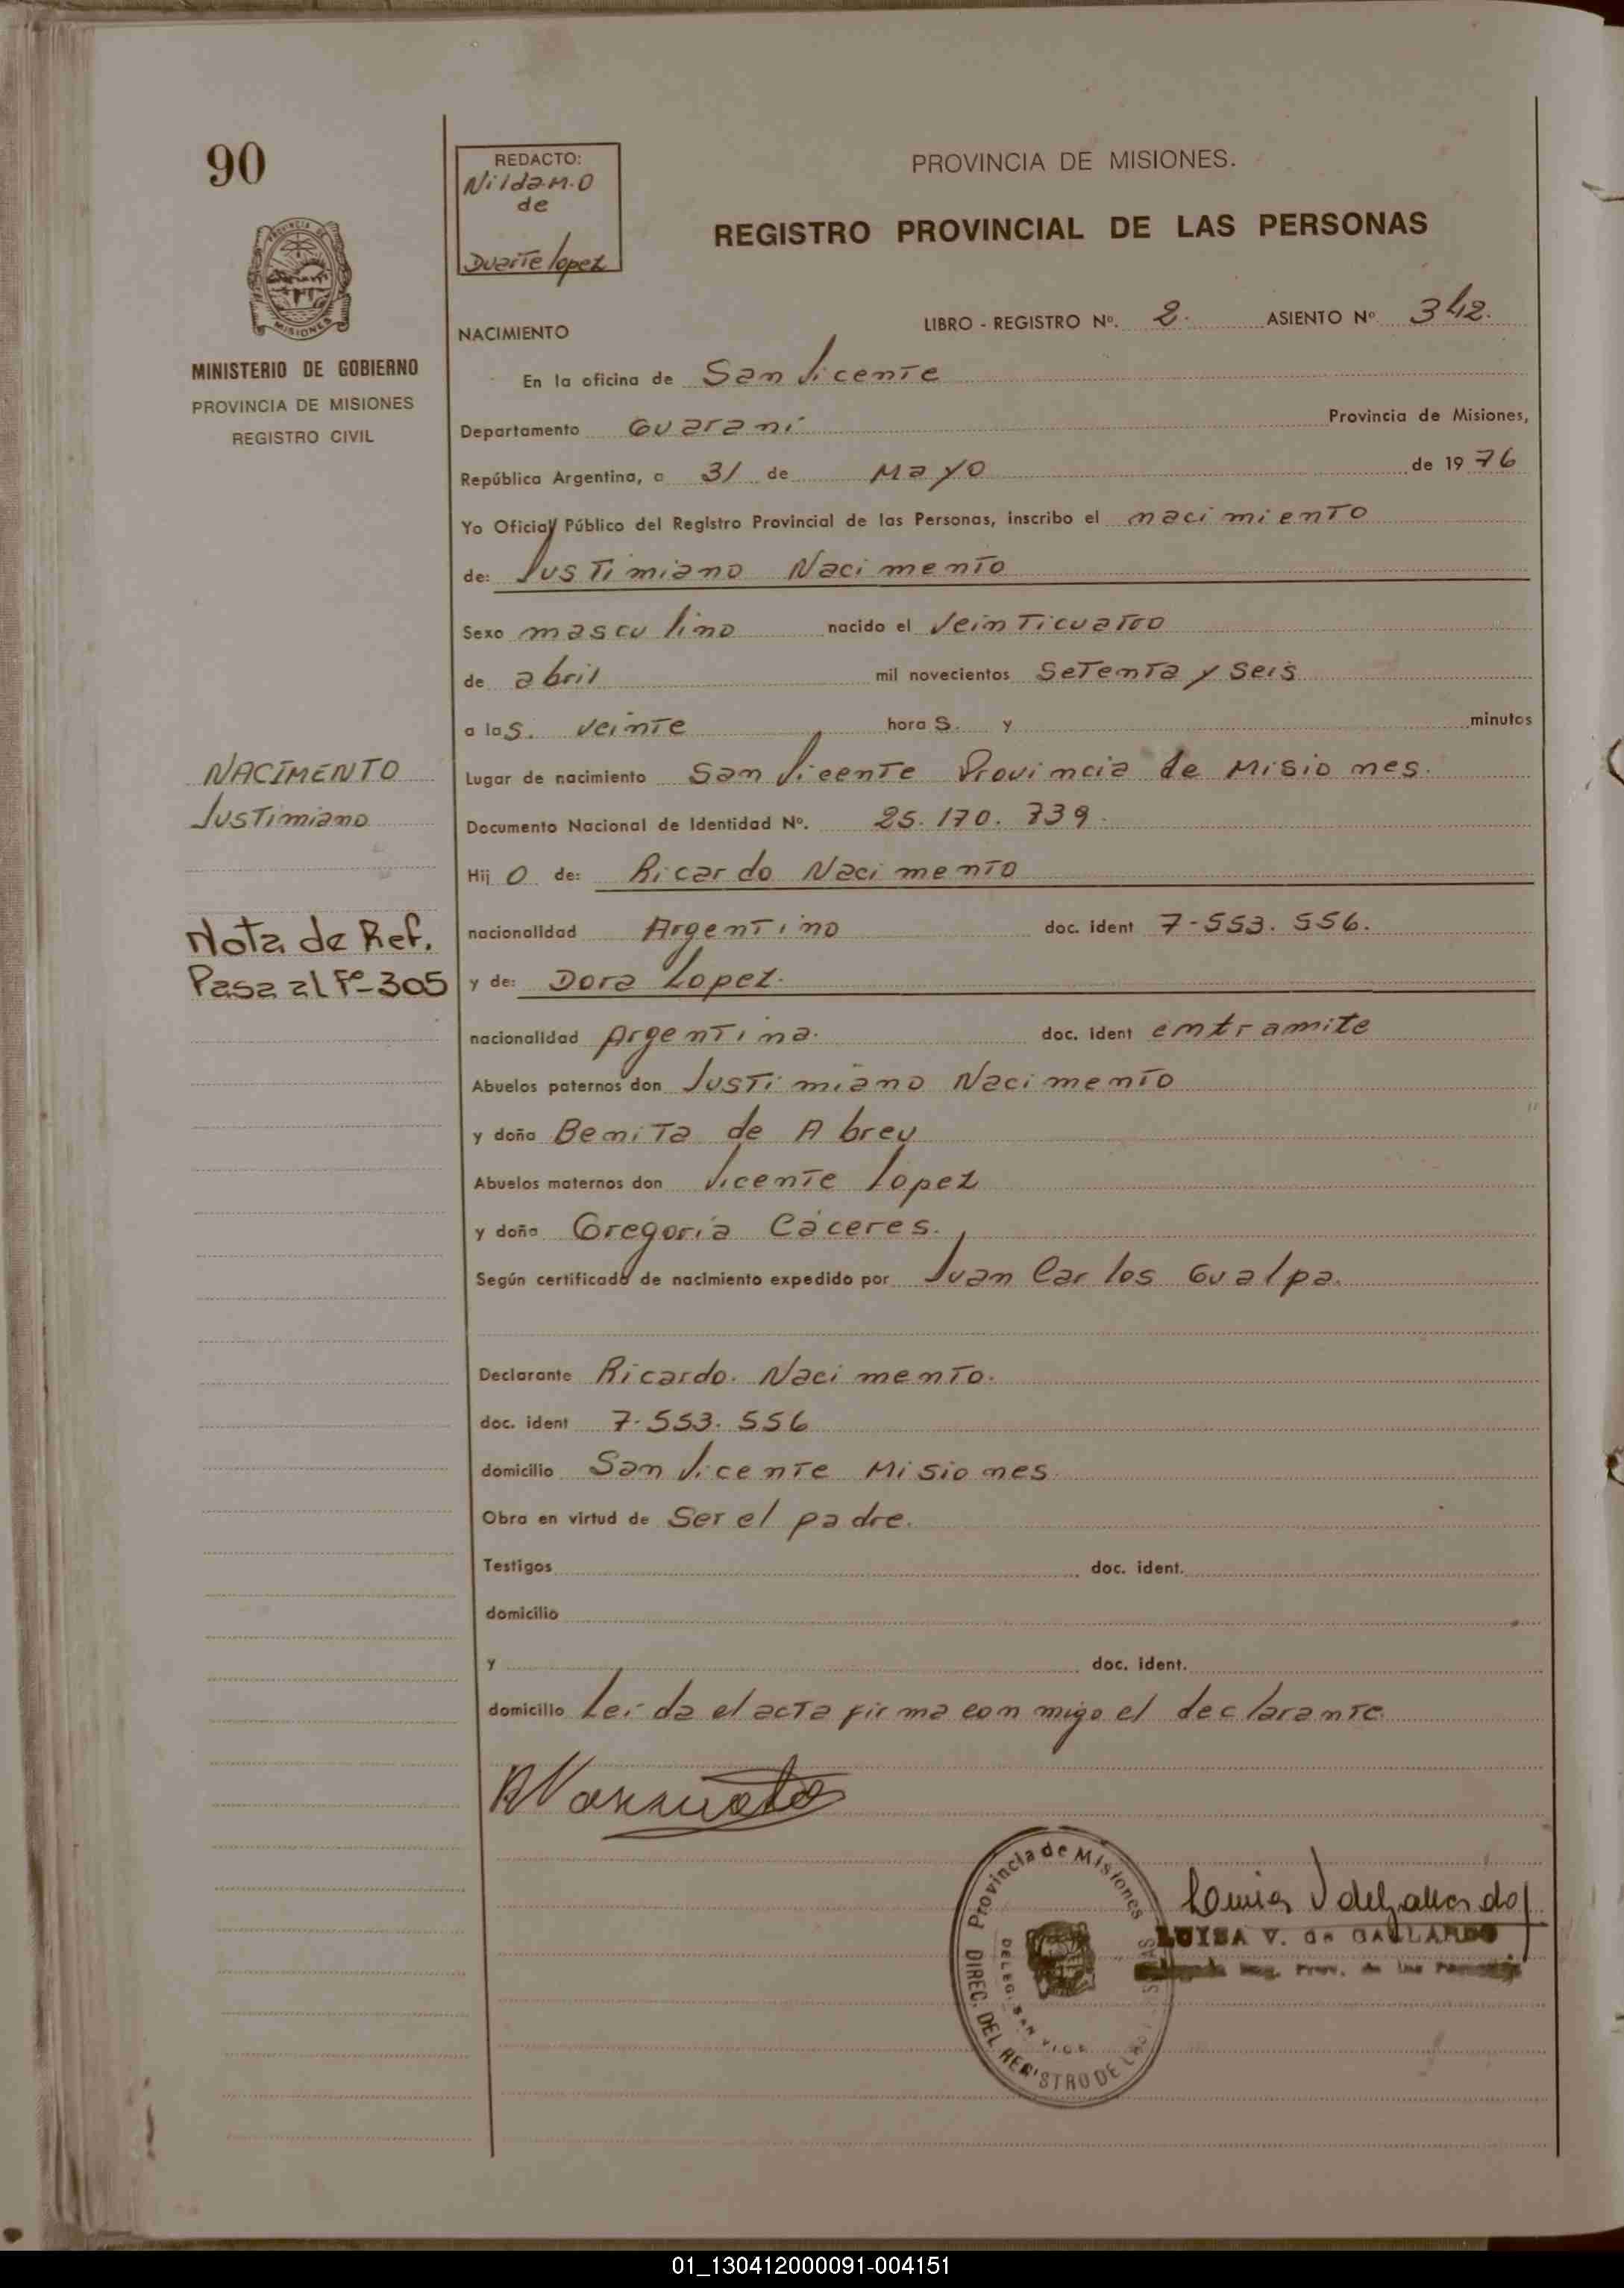 90
REDACTO:
Nilda M. O
de
Duarte lopez
PROVINCIA DE MISIONES.
REGISTRO PROVINCIAL DE LAS PERSONAS
MISIONES
MINISTERIO DE GOBIERNO
PROVINCIA DE MISIONES
REGISTRO CIVIL
NACIMIENTO LIBRO - REGISTRO Nº. 2. ASIENTO Nº. 342.
En la oficina de San Vicente
Departamento Guaraní Provincia de Misiones,
República Argentina, a 31 de Mayo de 1976
Yo Oficial Público del Registro Provincial de las Personas, inscribo el nacimiento
de: Justimiano Nacimento
Sexo masculino nacido el Veinticuatro
de abril mil novecientos Setenta y Seis
a las. veinte horas. y minutos
NACIMENTO
Justimiano
Lugar de nacimiento San Vicente Provincia de Misiones.
Documento Nacional de Identidad Nº. 25.170.739.
Hijo de: Ricardo Nacimento
Nota de Ref.
Pasa al Fº-305
nacionalidad Argentino doc. ident 7-553.556.
y de: Dora Lopez.
nacionalidad Argentina. doc. ident en tramite
Abuelos paternos don Justimiano Nacimento
y doña Benita de Abreu
Abuelos maternos don Vicente lopez
y doña Gregoria Cáceres.
Según certificado de nacimiento expedido por Juan Carlos Gualpa.
Declarante Ricardo. Nacimento.
doc. ident 7-553.556
domicilio San Vicente Misiones
Obra en virtud de Ser el padre.
Testigos doc. ident.
domicilio
y doc. ident.
domicilio Leída el acta firma conmigo el declarante
Provincia de Misiones
DIREC. DEL REGISTRO DE
DELEG. SAN VICE
Luisa V de Gallardo
LUISA V. de GALLARDO
Reg. Prov. de las Personas
01_130412000091-004151